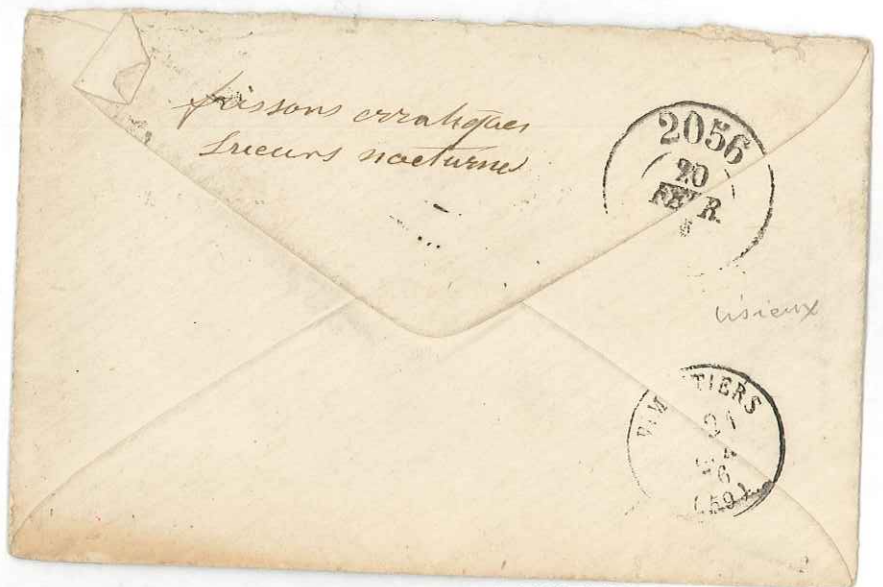 frissons erratiques
sueurs nocturnes
2056
20
FEVR.
6
Lisieux
VIMOUTIERS
21
6
(59)